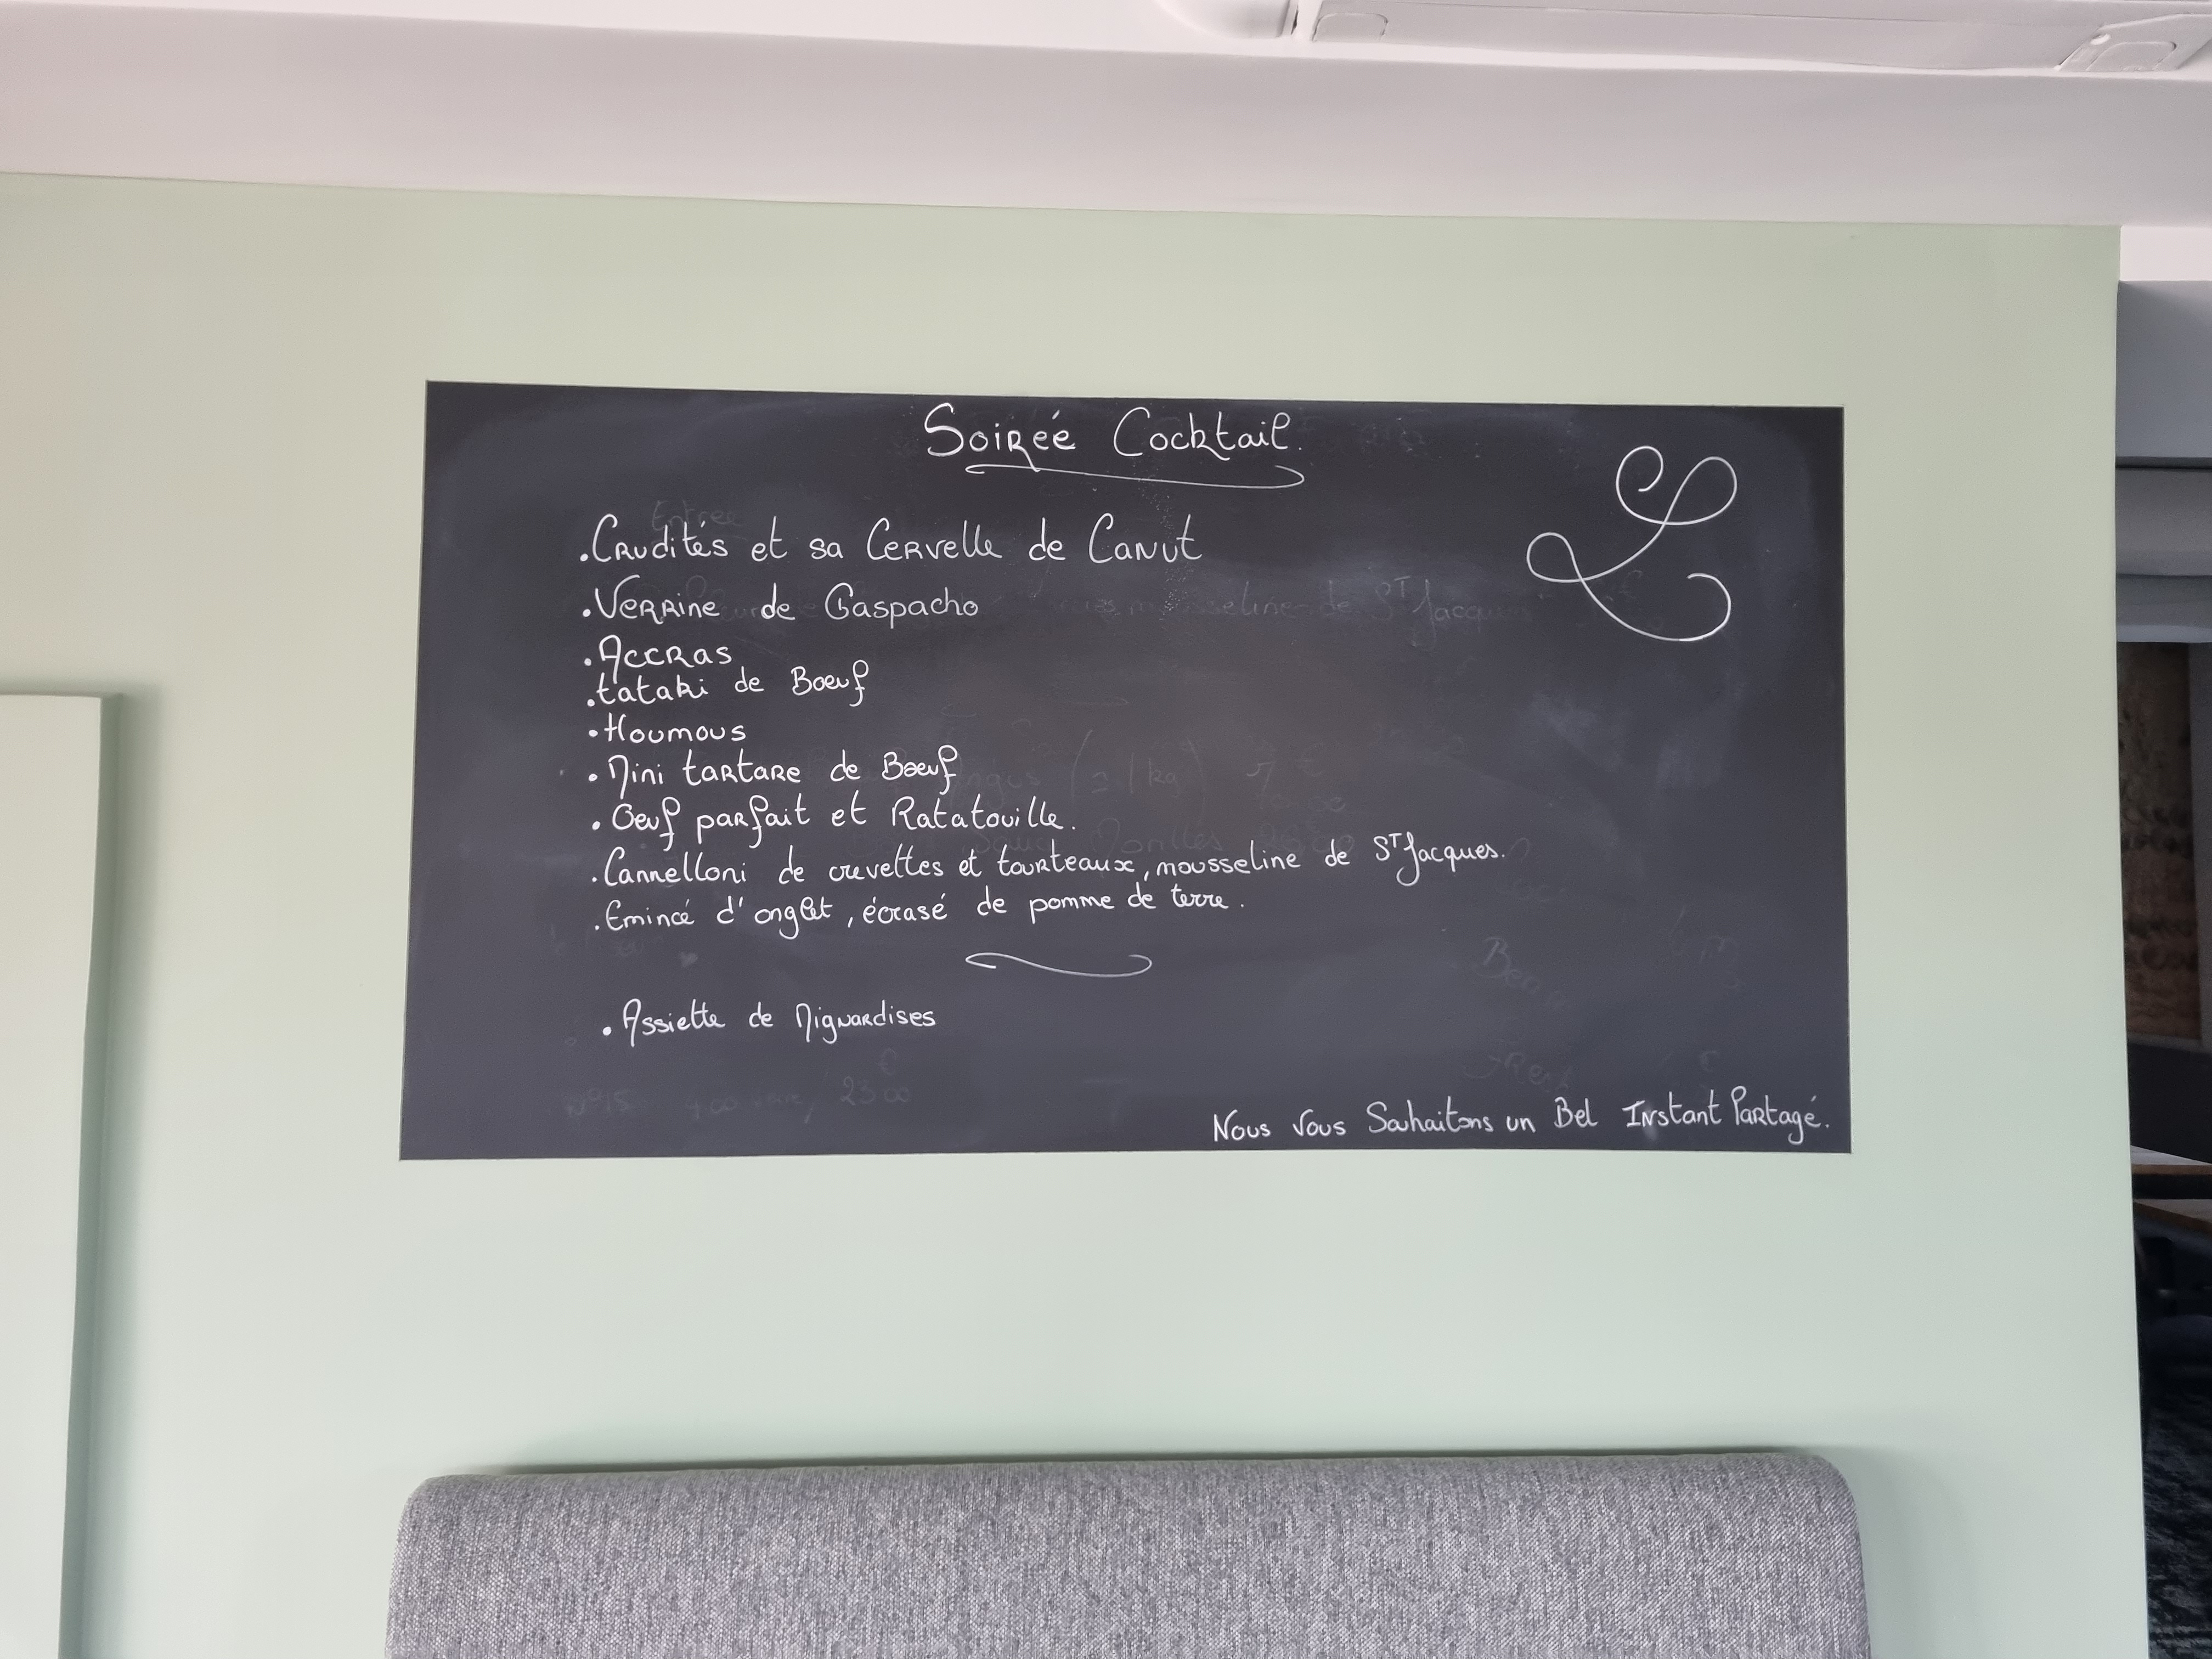 Soirée Cocktail.
.Crudités et sa Cervelle de Canut
.Verrine de Gaspacho
.Accras
.tataki de Boeuf
.Houmous
.Mini tartare de Boeuf
.Oeuf parfait et Ratatouille.
.Cannelloni de crevettes et tourteaux, mousseline de ST Jacques.
.Emincé d'onglet, écrasé de pomme de terre.
.Assiette de Mignardises
Nous Vous Souhaitons un Bel Instant Partagé.